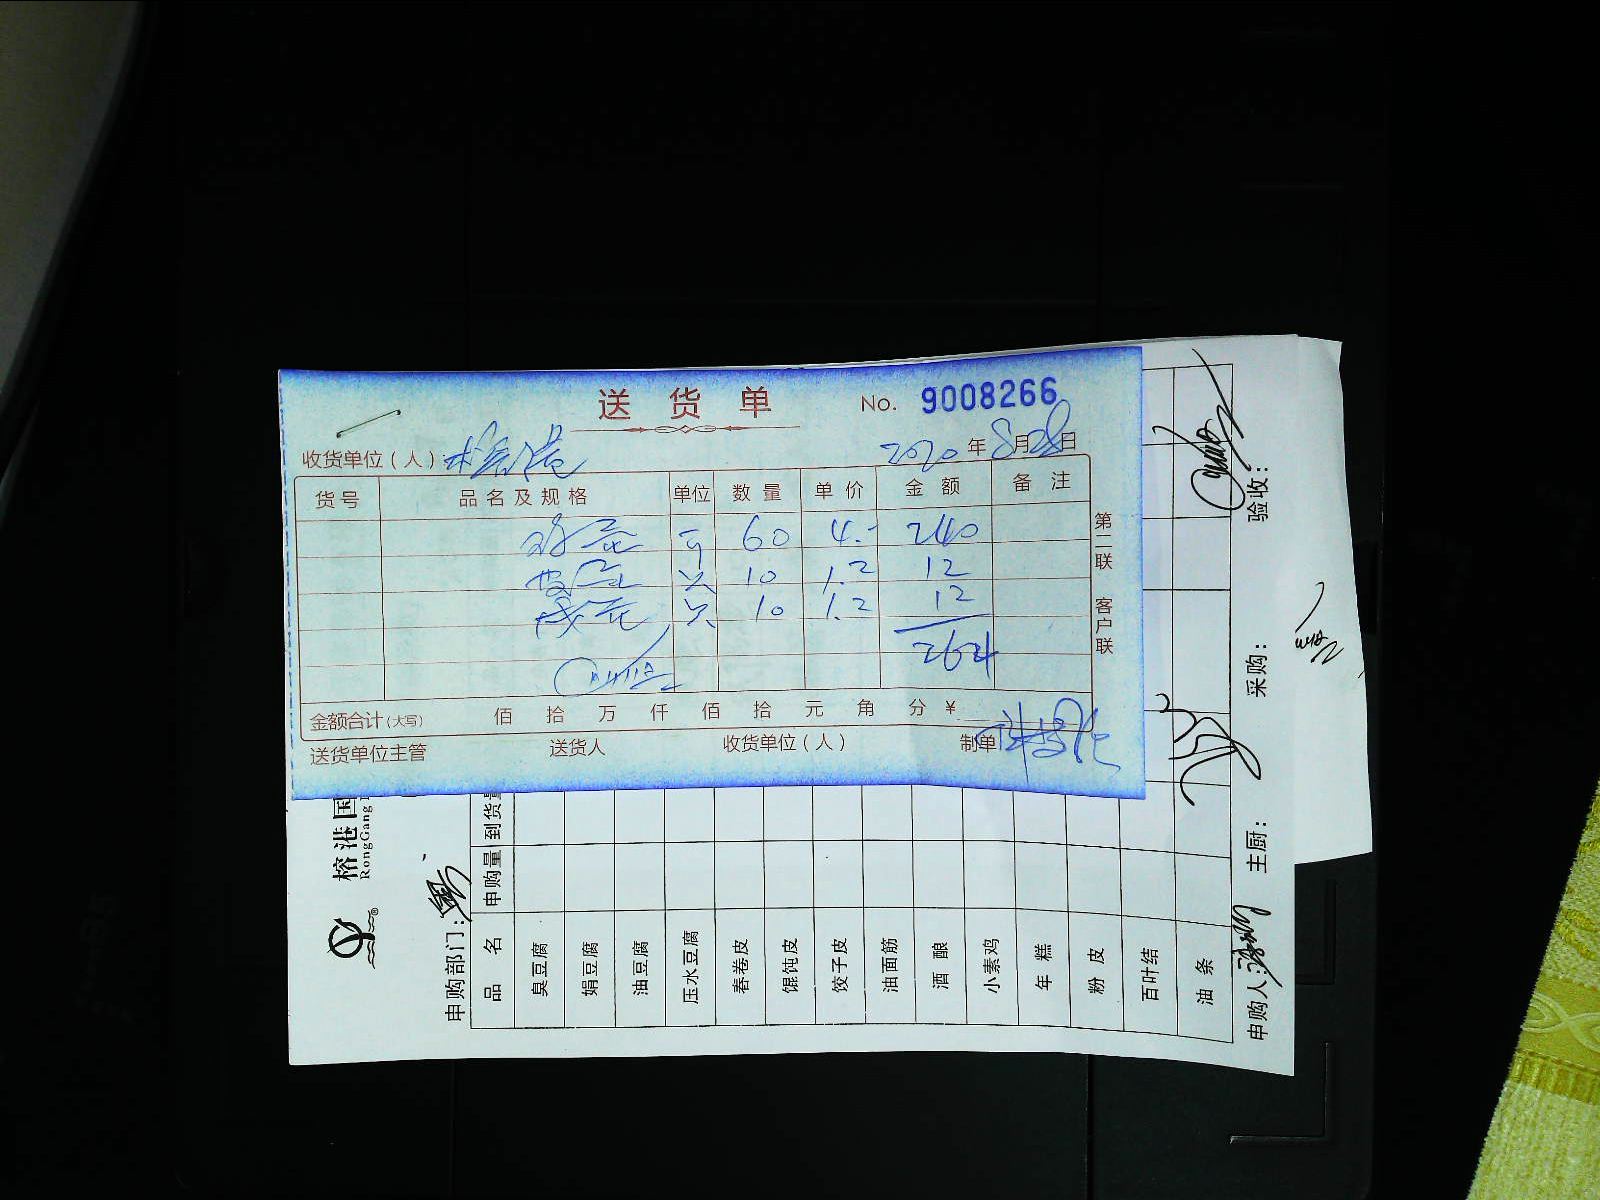 送货单
No. 9008266
收货单位(人) 榕港
2020年8月28日
货号 品名及规格 单位 数量 单价 金额 备注
鸡蛋 斤 60 4.- 240
皮蛋 只 10 1.2 12
咸蛋 只 10 1.2 12
264
金额合计(大写) 佰 拾 万 仟 佰 拾 元 角 分 ¥
送货单位主管 送货人 收货单位(人) 制单
第二联 客户联
榕港国
RongGang
申购部门:
品名 申购量 到货量
臭豆腐
娟豆腐
油豆腐
压水豆腐
春卷皮
馄饨皮
饺子皮
油面筋
酒酿
小素鸡
年糕
粉皮
百叶结
油条
申购人: 主厨: 采购: 验收: